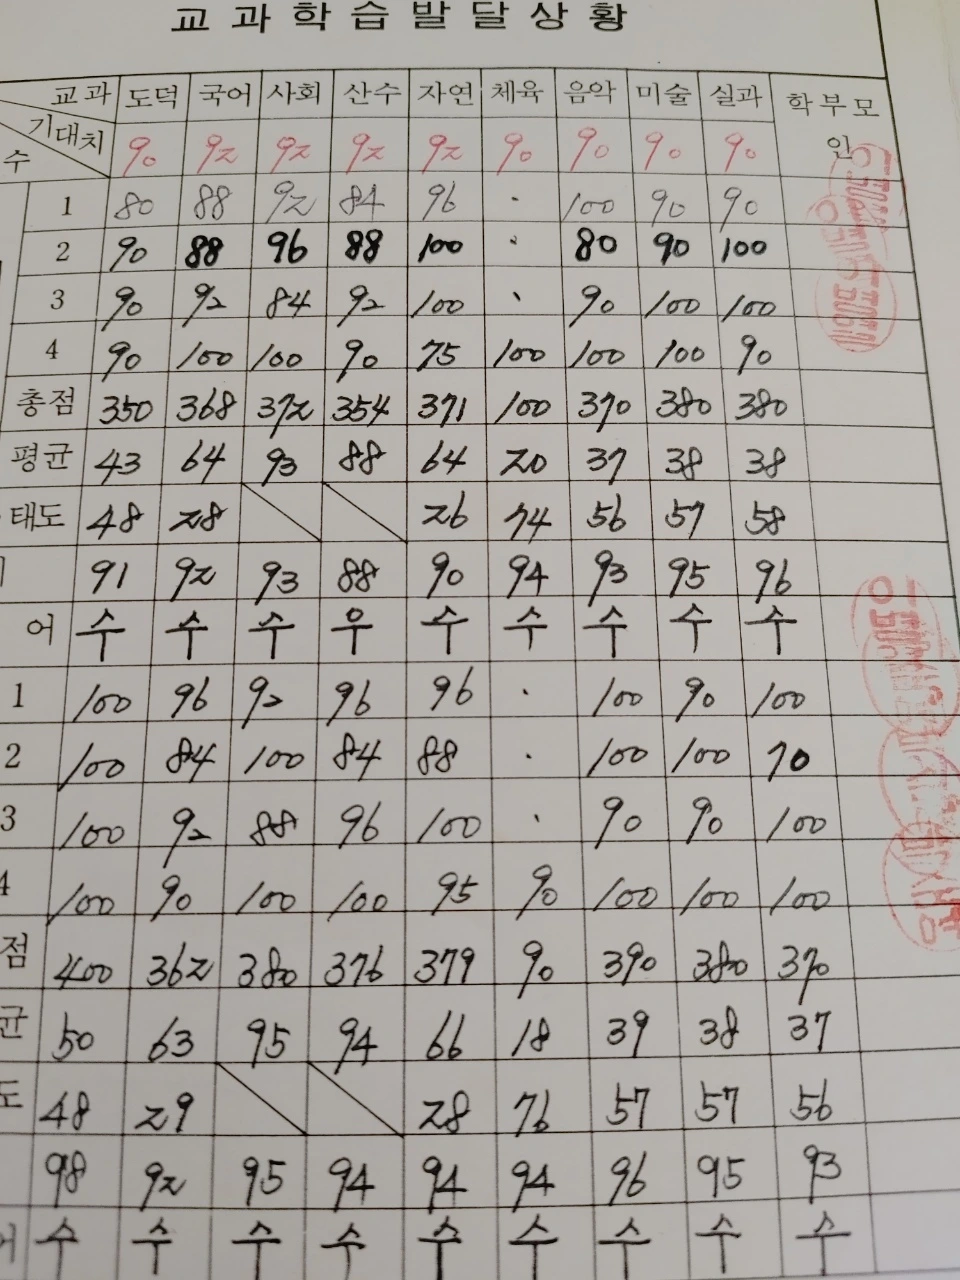 교과학습발달상황
교과 도덕 국어 사회 산수 자연 체육 음악 미술 실과 학부모
기대치 90 92 92 92 92 90 90 90 90 인
수
1 80 88 92 84 96 · 100 90 90
2 90 88 96 88 100 · 80 90 100
3 90 92 84 92 100 · 90 100 100
4 90 100 100 90 75 100 100 100 90
총점 350 368 372 354 371 100 370 380 380
평균 43 64 93 88 64 20 37 38 38
태도 48 28 26 74 56 57 58
91 92 93 88 90 94 93 95 96
어 수 수 수 우 수 수 수 수 수
1 100 96 92 96 96 · 100 90 100
2 100 84 100 84 88 · 100 100 70
3 100 92 88 96 100 · 90 90 100
4 100 90 100 100 95 90 100 100 100
점 400 362 380 376 379 90 390 380 370
균 50 63 95 94 66 18 39 38 37
도 48 29 28 76 57 57 56
98 92 95 94 94 94 96 95 93
어 수 수 수 수 수 수 수 수 수